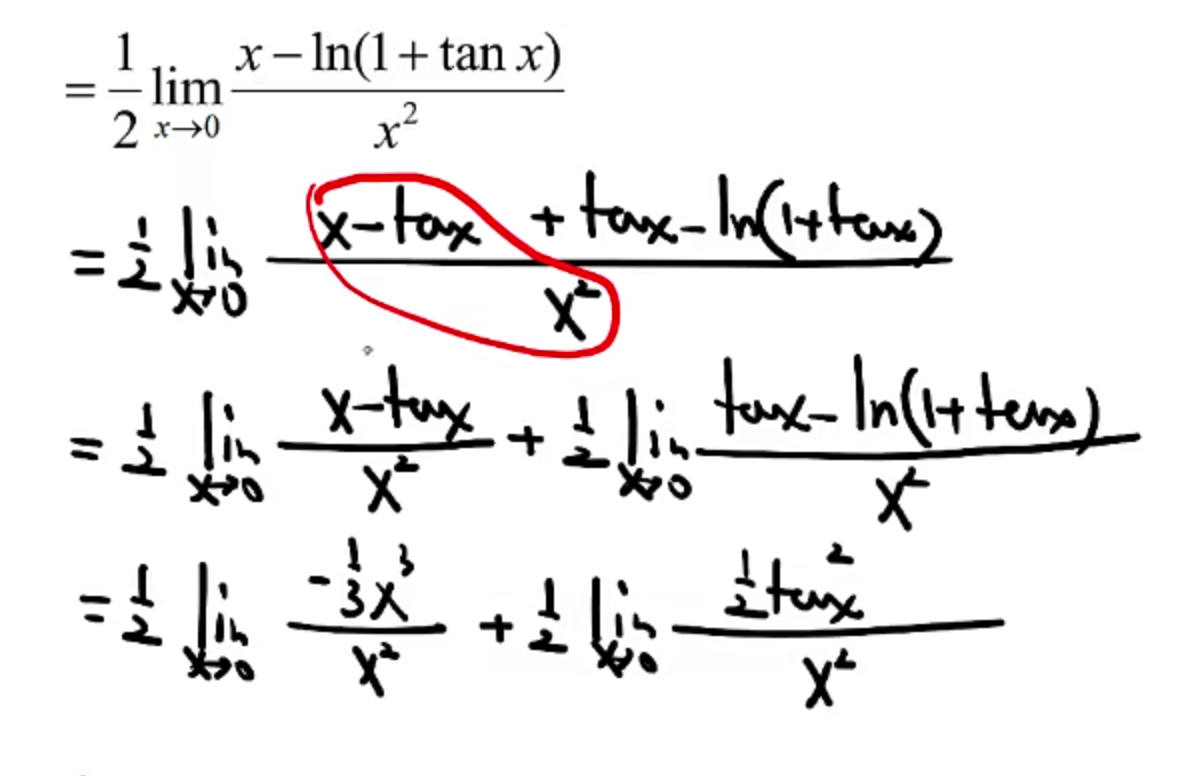 = 1/2 lim x→0 (x − ln(1 + tan x)) / x²
= 1/2 lim x→0 (x − tanx + tanx − ln(1+tanx)) / x²
= 1/2 lim x→0 (x − tanx) / x² + 1/2 lim x→0 (tanx − ln(1+tanx)) / x²
= 1/2 lim x→0 (−1/3 x³) / x² + 1/2 lim x→0 (1/2 tanx²) / x²